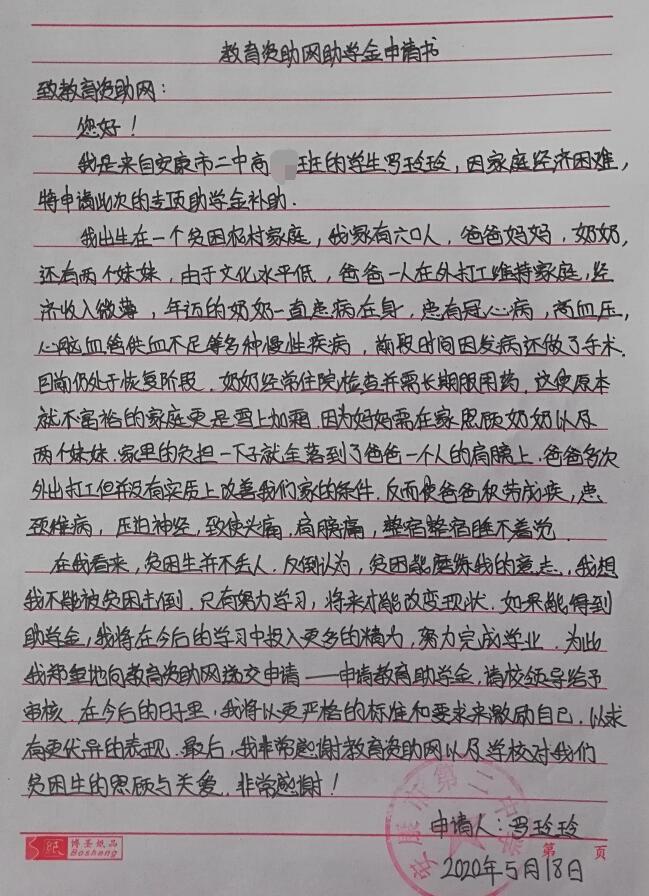 教育资助网助学金申请书
致教育资助网：
您好！
我是来自安康市二中高 班的学生罗玲玲，因家庭经济困难，
特申请此次的专项助学金补助．
我出生在一个贫困农村家庭，我家有六口人，爸爸妈妈，奶奶，
还有两个妹妹，由于文化水平低，爸爸一人在外打工维持家庭，经
济收入微薄，年迈的奶奶一直患病在身，患有冠心病，高血压，
心脑血管供血不足等多种慢性疾病，前段时间因发病还做了手术．
目前仍处于恢复阶段．奶奶经常住院检查并需长期服用药，这使原本
就不富裕的家庭更是雪上加霜．因为妈妈需在家照顾奶奶以及
两个妹妹．家里的负担一下子就全落到了爸爸一个人的肩膀上．爸爸多次
外出打工但并没有实质上改善我们家的条件．反而使爸爸积劳成疾，患
颈椎病，压迫神经，致使头痛，肩膀痛，整宿整宿睡不着觉．
在我看来，贫困生并不丢人．反倒认为，贫困能磨练我的意志．，我想
我不能被贫困击倒．只有努力学习，将来才能改变现状．如果能得到
助学金，我将在今后的学习中投入更多的精力，努力完成学业．为此
我郑重地向教育资助网递交申请——申请教育助学金．请校领导给予
审核．在今后的日子里，我将以更严格的标准和要求来激励自己．以求
有更优异的表现．最后，我非常感谢教育资助网以及学校对我们
贫困生的照顾与关爱．非常感谢！
申请人：罗玲玲
2020年5月18日
博圣纸品
Bosheng
第 页
安康市第二中学